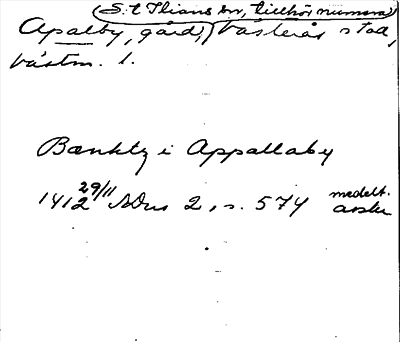 (S:t Ilians sn, tillhör numera)
Apalby, gård, Västerås stad,
Västm. l.
Bænktz i Appallaby
1412 29/11 SDns 2, s. 574 medelt.
avskr